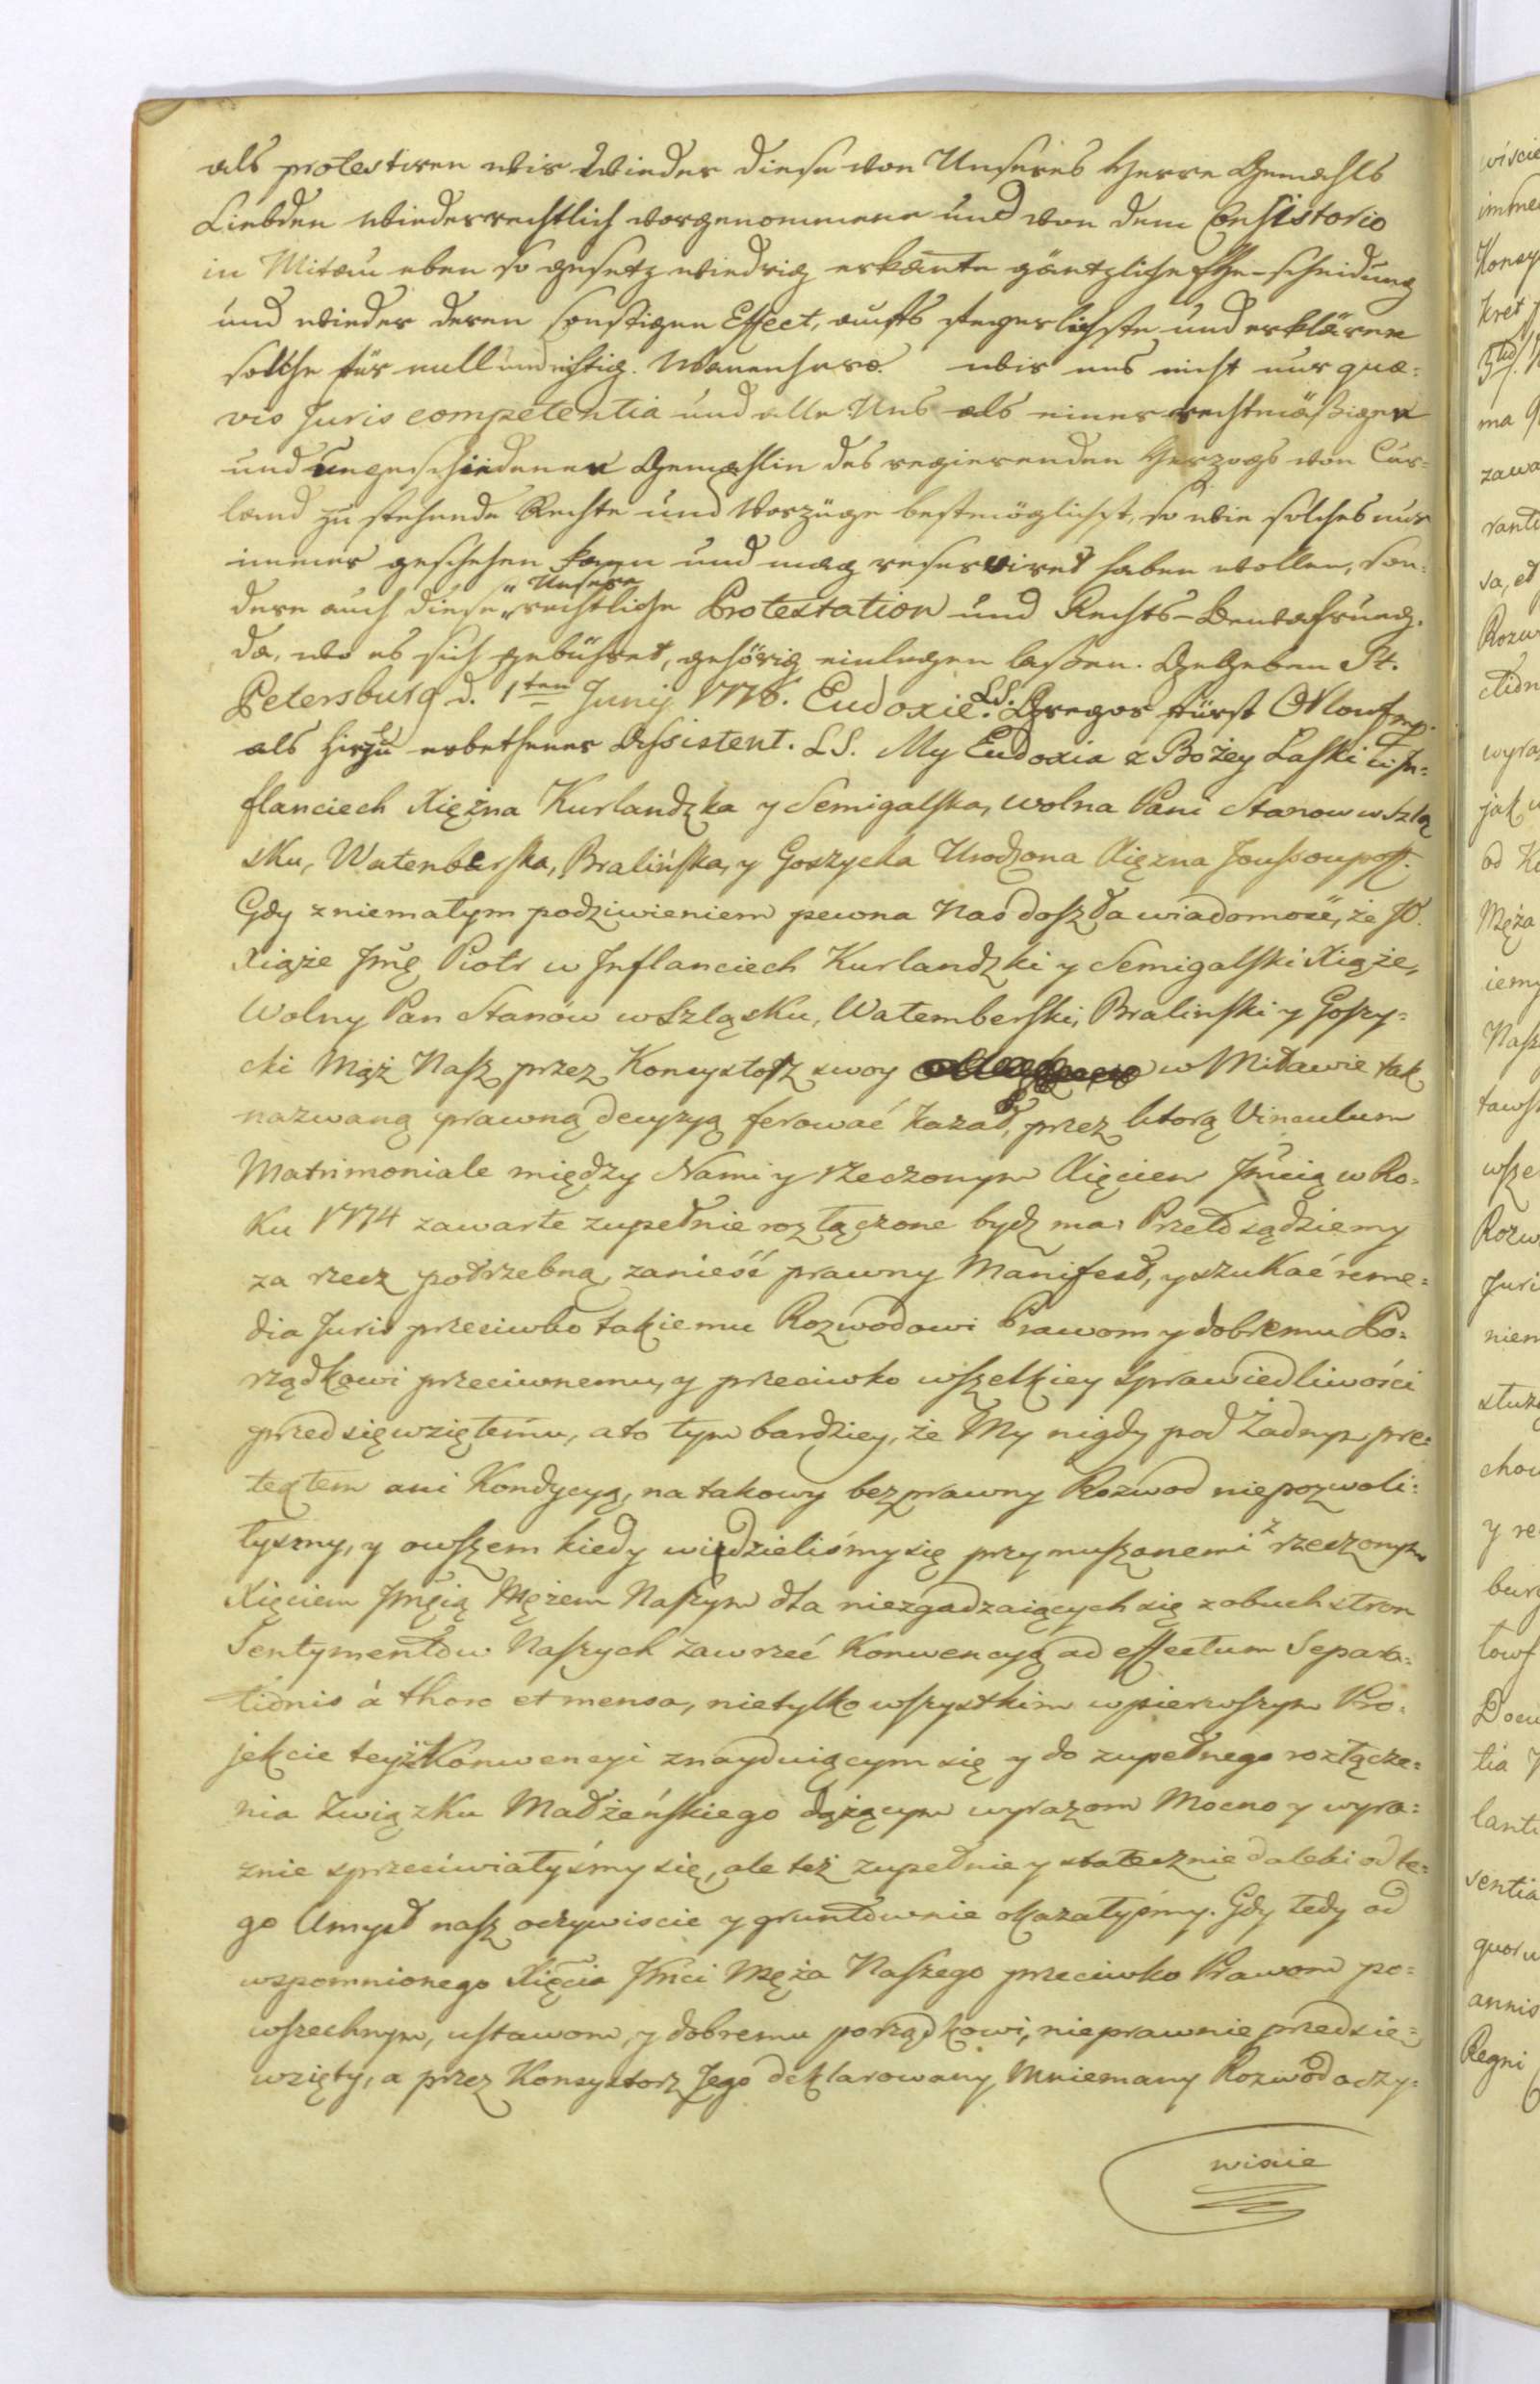 als protestiren wir wieder diese von Unseres Herrn Gemahls
Liebden wiederrechtlich vorgenommene und von dem Consistorio
in Mitau eben so gesetzwiedrig erkante gäntzliche Ehe-scheidung
und wieder deren sonstigen Effect, aufs feyerlichste und erklären
solche für null und nichtig. wir uns nicht nur quæ=
vis Juris competentia und alle Uns als einer rechtmäßigen
und ungeschiedenen Gemahlin des regierenden Herzogs von Cur=
land zu stehende Rechte und Vorzüge bestmöglichst, so wie solches nur
immer geschehen kann und mag reserviret haben wollen, son=
dern auch diese Unsere rechtliche Protestation und Rechts-Bewahrung.
da, wo es sich gebühret, gehörig einlegen laßen. Gegeben St.
Petersburg d. 1ten Junij 1778. Eudoxie. L.S. Gregor Fürst Orlow mp.
als hierzu erbethener Assistent. L.S. My Eudoxia z Bożey Łaski w In=
flanciech Xiężna Kurlandzka y Semigalska, wolna Pani Stanow w Szlą
sku, Watenberska, Bralińska, y Goszycka Urodzona Xiężna Joussoupoff.
Gdy z niemałym podziwieniem pewna Nas doszła wiadomość, że JO.
Xiąże Jmć Piotr w Inflanciech Kurlandzki y Semigalski Xiąże,
Wolny Pan Stanów w Szląsku, Watemberski, Bralinski y Goszy=
cki Mąż Nasz przez Konsystorz swoy w Mitawie tak
nazwaną prawną decyzyą ferować kazał, przez ktorą Vinculum
Matrimoniale między Nami y rzeczonym Xięciem Jmcią w Ro=
ku 1774 zawarte zupełnie rozłączone bydź ma. Przeto sądziemy
za rzecz potrzebną, zanieść prawny Manifest, y szukać reme=
dia Juris przeciwko takiemu Rozwodowi Prawom y dobremu Po=
rządkowi przeciwnemu, y przeciwko wszelkiey sprawiedliwości
przedsięwziętemu, a to tym bardziey, że My nigdy pod Żadnym pre=
textem ani Kondycyą, na takowy bezprawny Rozwod niepozwoli=
łysmy, y owszem kiedy widzieliśmy się przymuszonemi z rzeczonym
Xięciem Jmcią Mężem Naszym dla niezgadzaiących się z obuch stron
Sentymentow Naszych zawrzeć Konwencyą ad effectum Separa=
tionis á thoro et mensa, nietylko wszystkim w pierwszym Pro=
jekcie teyże Konwencyi znayduiącym się y do zupełnego rozłącze=
nia Związku Małżeńskiego dążącym wyrazom Mocno y wyra=
znie sprzeciwiałyśmy się, ale też zupełnie y statecznie daleki od te=
go Umysł nasz oczywiscie y gruntownie okazałyśmy. Gdy tedy od
wspomnionego Xięcia Jmci Męża Naszego przeciwko Prawom po=
wszechnym, ustawom, y dobremu porządkowi, nieprawnie przedsię=
wzięty, a przez Konsystorz Jego deklarowany Mniemany Rozwód oczy=
wiscie